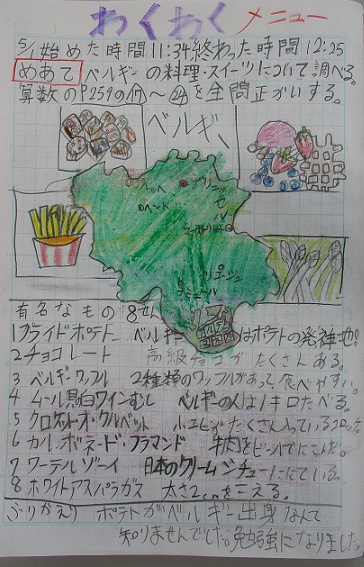 わくわくメニュー
5/1 始めた時間 11:34 終わった時間 12:25
めあて ベルギーの料理・スイーツについて調べる。
算数のP259の⑰〜㉔を全問正かいする。
ベルギー
ヘント
有名なもの 8せん
1 フライドポテト ベルギーはポテトの発祥地。
2 チョコレート 高級チョコがたくさんある。
3 ベルギーワッフル 2種類のワッフルがあって食べやすい。
4 ムール貝白ワインむし ベルギーの人は1キロたべる。
5 クロケットオ・クルベット 小エビがたくさん入っている
6 カルボネード・フラマンド 牛肉をビールでにこむ。
7 ワーテルゾーイ 日本のクリームシチューににている。
8 ホワイトアスパラガス 太さ2cmをこえる。
ふりかえり ポテトがベルギー出身なんて
知りませんでした。勉強になりました。